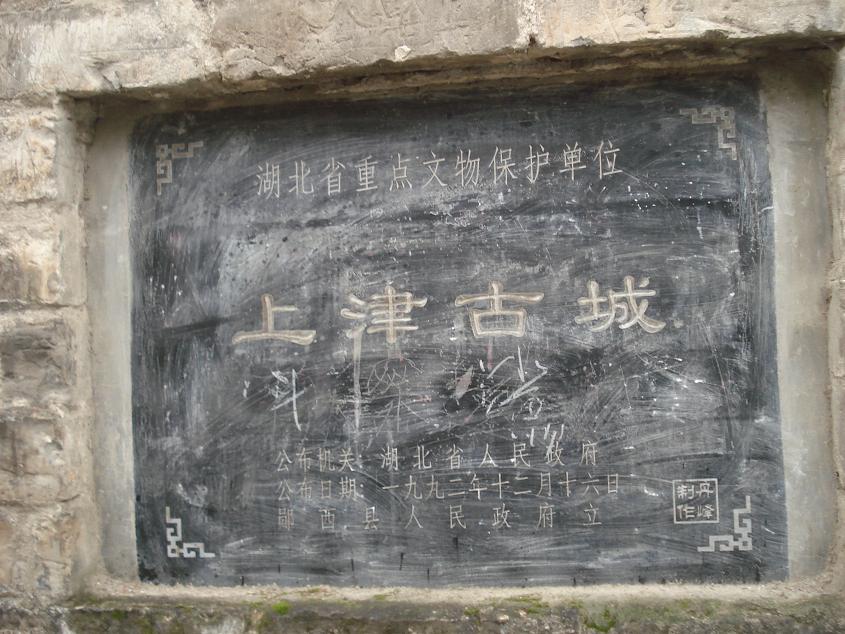 湖北省重点文物保护单位
上津古城
公布机关: 湖北省人民政府
公布日期: 一九九二年十二月十六日
郧西县人民政府立
丹峰
制作